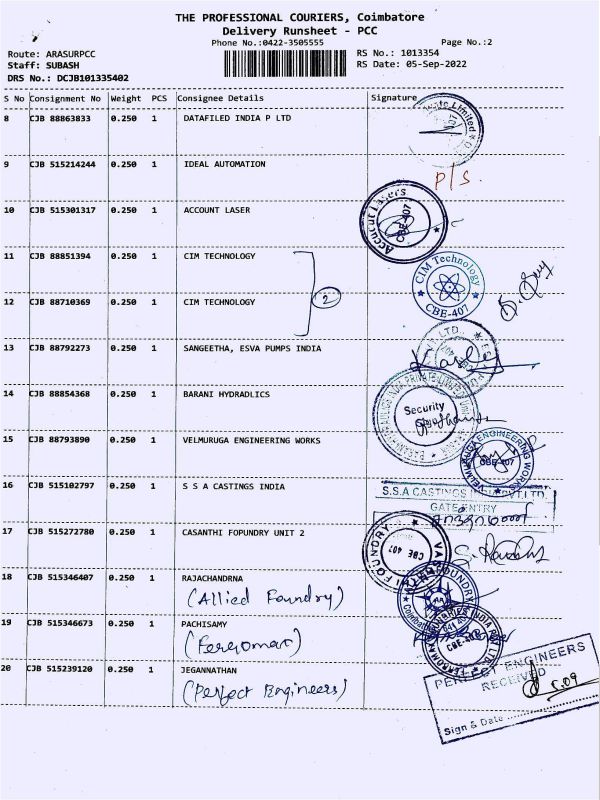 THE PROFESSIONAL COURIERS, Coimbatore
Delivery Runsheet - PCC
Phone No.:0422-3505555
Page No.:2
Route: ARASURPCC
RS No.: 1013354
Staff: SUBASH
RS Date: 05-Sep-2022
DRS No.: DCJB101335402
S No Consignment No Weight PCS Consignee Details Signature
8 CJB 88863833 0.250 1 DATAFILED INDIA P LTD
9 CJB 515214244 0.250 1 IDEAL AUTOMATION
P/S.
10 CJB 515301317 0.250 1 ACCOUNT LASER
Accucut Lasers
CBE-407
11 CJB 88851394 0.250 1 CIM TECHNOLOGY
2
CIM Technology
CBE-407
12 CJB 88710369 0.250 1 CIM TECHNOLOGY
13 CJB 88792273 0.250 1 SANGEETHA, ESVA PUMPS INDIA
14 CJB 88854368 0.250 1 BARANI HYDRADLICS
Security
15 CJB 88793890 0.250 1 VELMURUGA ENGINEERING WORKS
VELMURUGA ENGINEERING WORKS
CBE-407
16 CJB 515102797 0.250 1 S S A CASTINGS INDIA
S.S.A CASTINGS INDIA PVT LTD.
GATE ENTRY
17 CJB 515272780 0.250 1 CASANTHI FOPUNDRY UNIT 2
CBE 407
18 CJB 515346407 0.250 1 RAJACHANDRNA
(Allied Foundry)
19 CJB 515346673 0.250 1 PACHISAMY
(Ferromax)
CBE-407
20 CJB 515239120 0.250 1 JEGANNATHAN
(Perfect Engineers)
PERFECT ENGINEERS
RECEIVED
5.09
Sign & Date